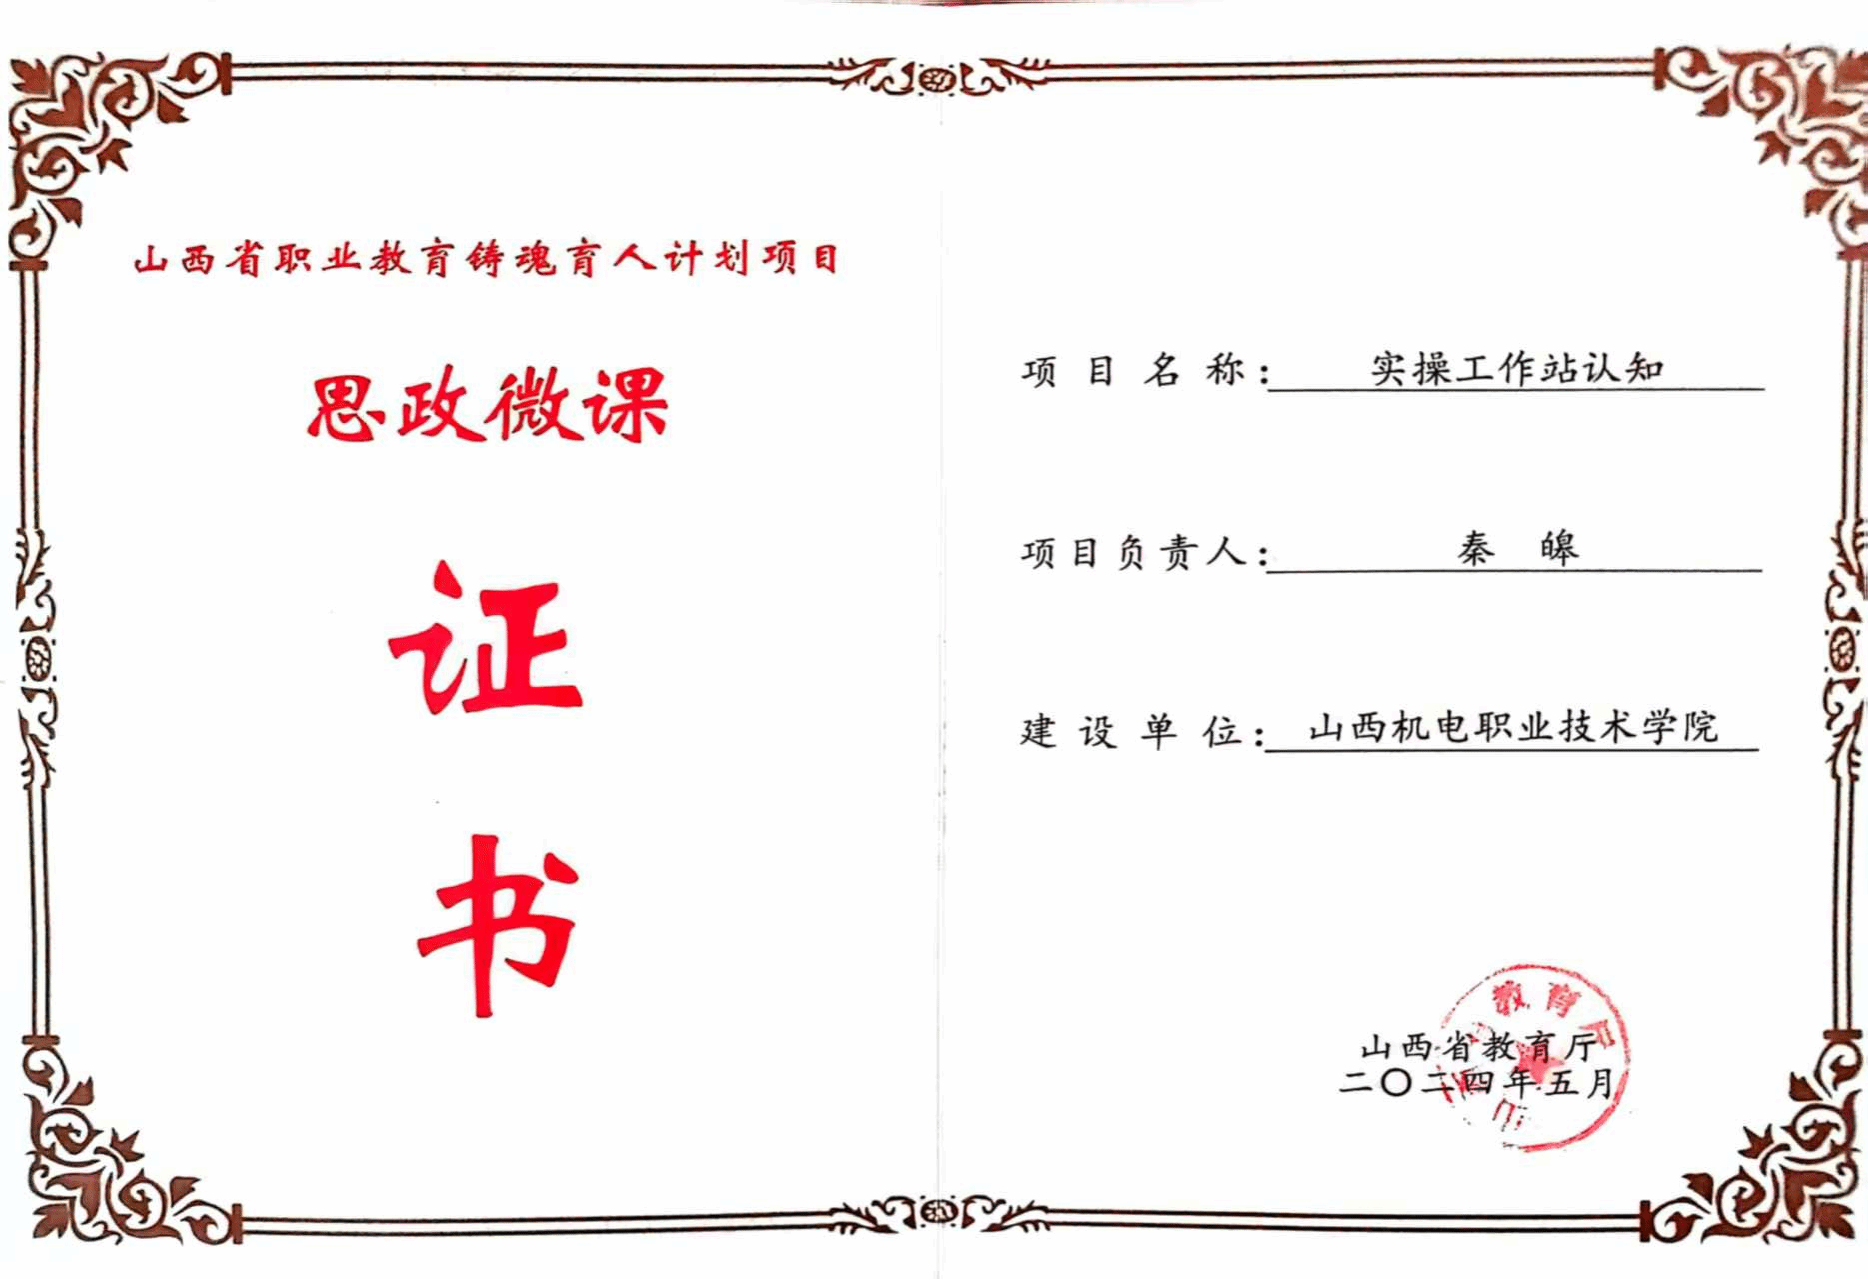 山西省职业教育铸魂育人计划项目
思政微课
证
书
项目名称：实操工作站认知
项目负责人：秦 皞
建设单位：山西机电职业技术学院
山西省教育厅
二〇二四年五月
教育厅